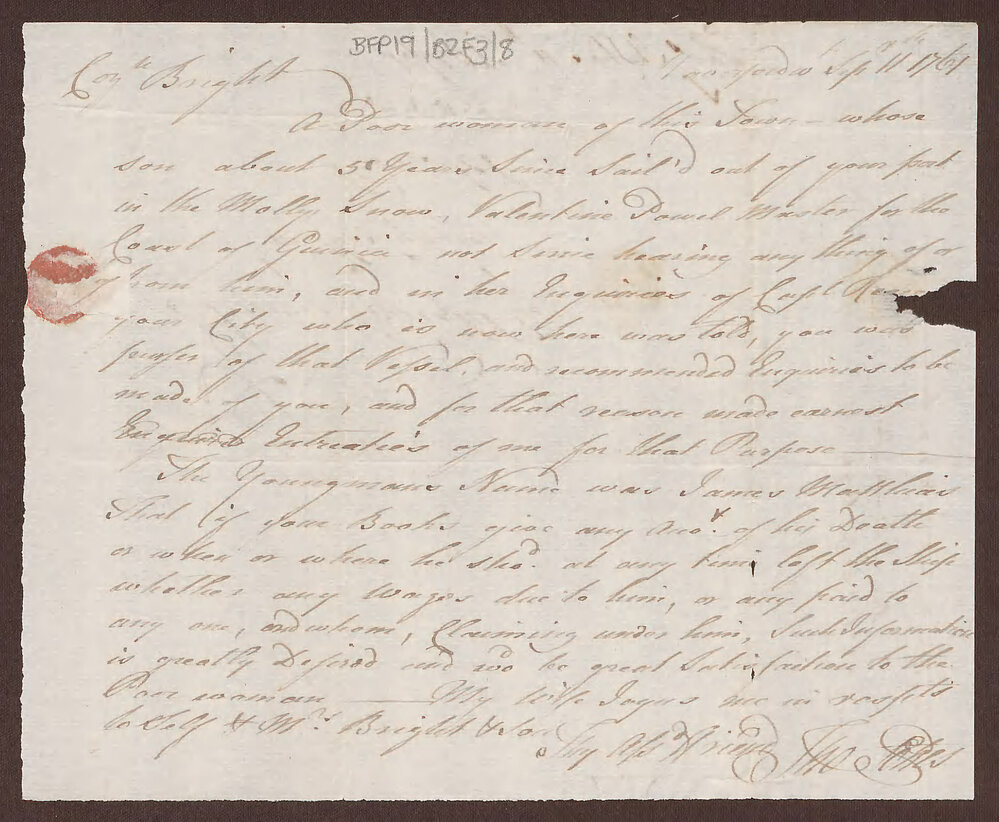 BFP19/BZF3/8
Bright
Sepr 11th 1761
A Poor woman of this Town - whose
son about 5 Years Since Sail'd out of your port
in the Molly Snow, Valentine Powel Master for the
Coast of Guinia not Since hearing any thing of or
from him, and in her Inquiries of Capt
your City who is now here was told, you was
purser of that Vessel, and recommended Inquiries to be
made of you, and for that reason made earnest
Intreaties of me for that Purpose
The Youngmans Name was James Matthias
That if your Books give any of his Death
or when or where he shod. at any time left the Ship
whether any Wages due to him, or any paid to
any one, and whom, Claiming under him, Such Information
is greatly Desired and wo'd be great Satisfaction to the
Poor woman My Wife Joyns me in respts
to Self & Mrs Bright & son
Thy Friend Tho